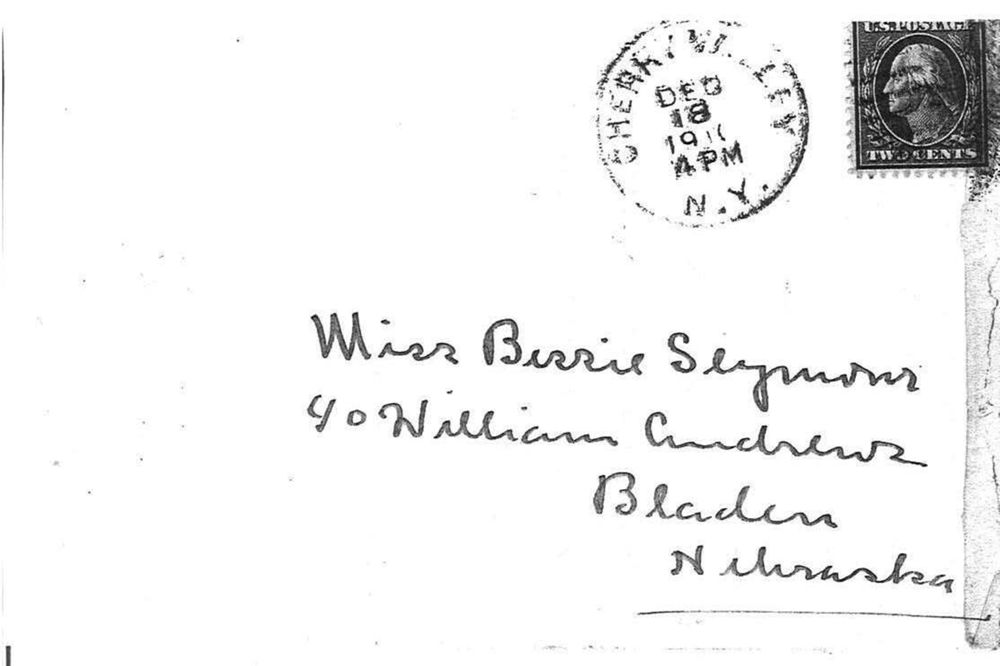 CHERRY VALLEY
DEC
18
4 PM
N.Y.
U.S. POSTAGE
TWO CENTS
Miss Bessie Seymour
c/o William Andrews
Bladen
Nebraska